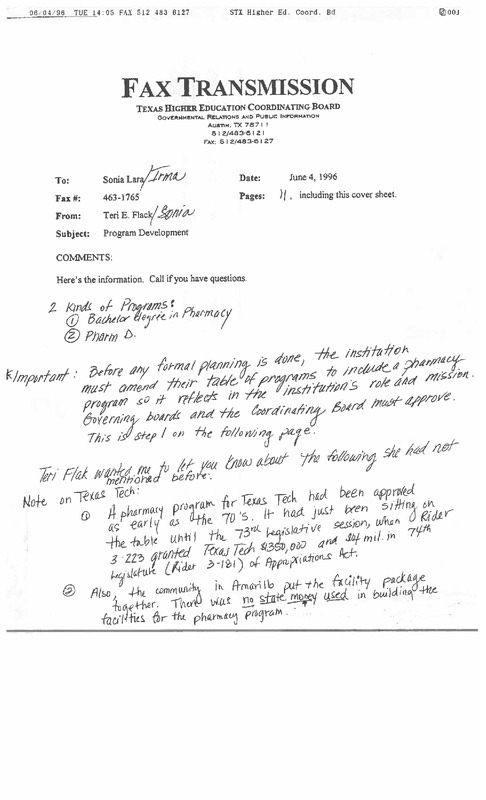 06/04/96 TUE 14:05 FAX 512 483 6127 STX Higher Ed. Coord. Bd 001
FAX TRANSMISSION
TEXAS HIGHER EDUCATION COORDINATING BOARD
GOVERNMENTAL RELATIONS AND PUBLIC INFORMATION
AUSTIN, TX 78711
512/483-6121
FAX: 512/483-6127
To: Sonia Lara/Irma Date: June 4, 1996
Fax #: 463-1765 Pages: 11, including this cover sheet.
From: Teri E. Flack/Sonia
Subject: Program Development
COMMENTS:
Here's the information. Call if you have questions.
2 Kinds of Programs:
① Bachelor degree in Pharmacy
② Pharm D.
*Important: Before any formal planning is done, the institution
must amend their table of programs to include a pharmacy
program so it reflects in the institution's role and mission.
Governing boards and the Coordinating Board must approve.
This is step 1 on the following page.
Teri Flak wanted me to let you know about the following she had not
mentioned before:
Note on Texas Tech:
① A pharmacy program for Texas Tech had been approved
as early as the 70's. It had just been sitting on
the table until the 73rd Legislative session, when Rider
3-223 granted Texas Tech $350,000 and $4 mil. in 74th
Legislature (Rider 3-181) of Appropriations Act.
② Also, the community in Amarillo put the facility package
together. There was no state money used in building the
facilities for the pharmacy program.